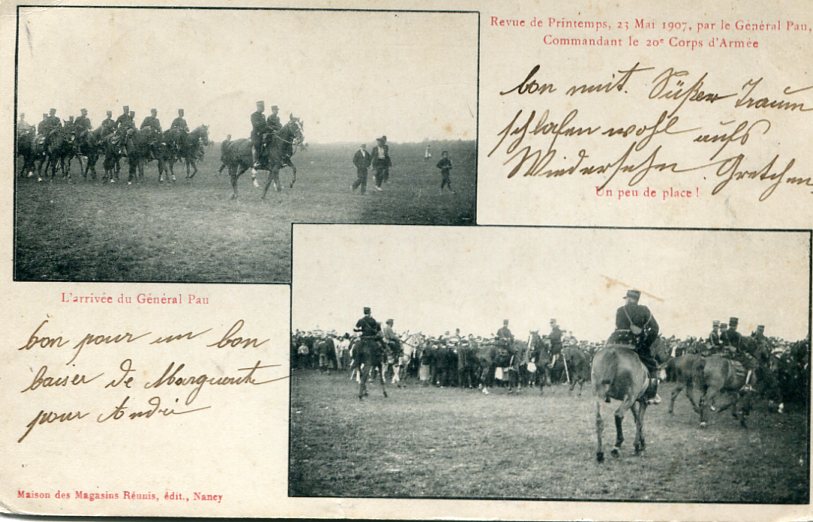 Revue de Printemps, 23 Mai 1907, par le Général Pau,
Commandant le 20e Corps d'Armée
bon nuit. Süßen Traum
schlafen wohl aufs
Wiedersehn Gretchen.
Un peu de place !
L'arrivée du Général Pau
bon pour un bon
baiser de Marguerite
pour André
Maison des Magasins Réunis, édit., Nancy